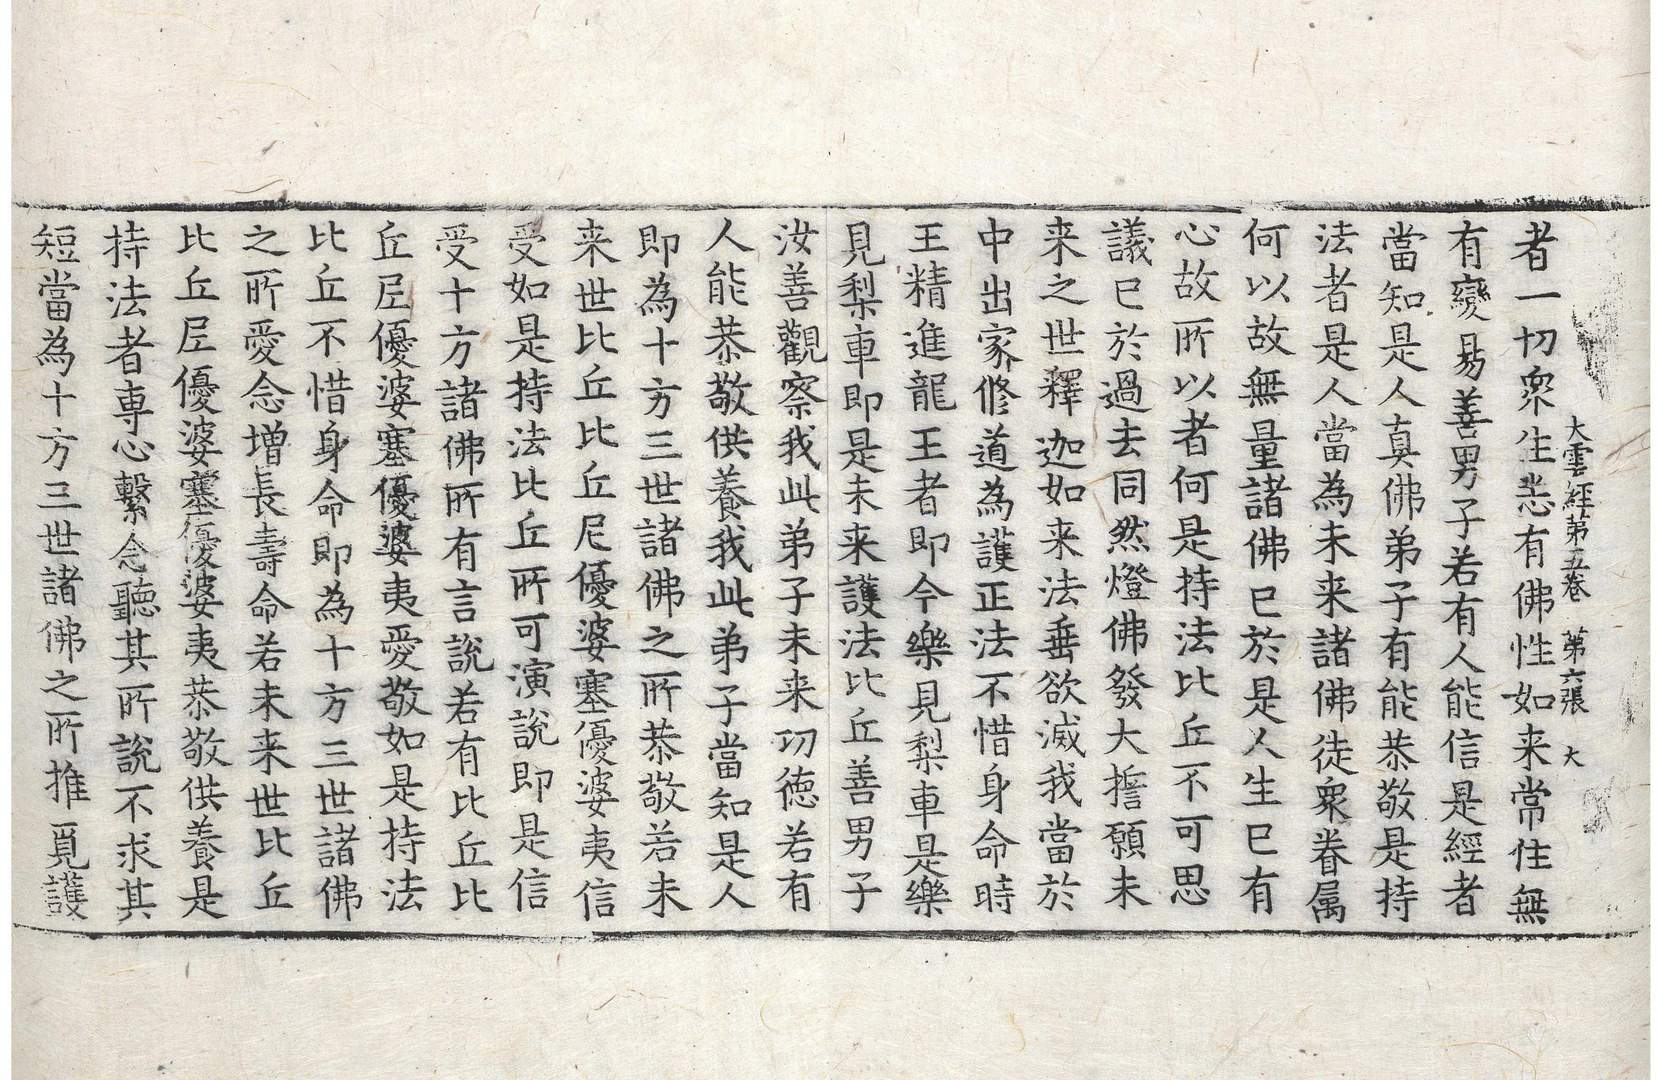 大雲經第五卷 第六張 大
者一切衆生悉有佛性如来常住無
有變易善男子若有人能信是經者
當知是人真佛弟子有能恭敬是持
法者是人當為未来諸佛徒衆眷属
何以故無量諸佛已於是人生已有
心故所以者何是持法比丘不可思
議已於過去同然燈佛發大擔願未
来之世釋迦如来法垂欲滅我當於
中出家修道為護正法不惜身命時
王精進龍王者即今樂見梨車是樂
見梨車即是未来護法比丘善男子
汝善觀察我此弟子未来功徳若有
人能恭敬供養我此弟子當知是人
即為十方三世諸佛之所恭敬若未
来世比丘比丘尼優婆塞優婆夷信
受如是持法比丘所可演說即是信
受十方諸佛所有言說若有比丘比
丘尼優婆塞優婆夷愛敬如是持法
比丘不惜身命即為十方三世諸佛
之所愛念增長壽命若未来世比丘
比丘尼優婆塞優婆夷恭敬供養是
持法者専心繫念聽其所說不求其
短當為十方三世諸佛之所推覓護